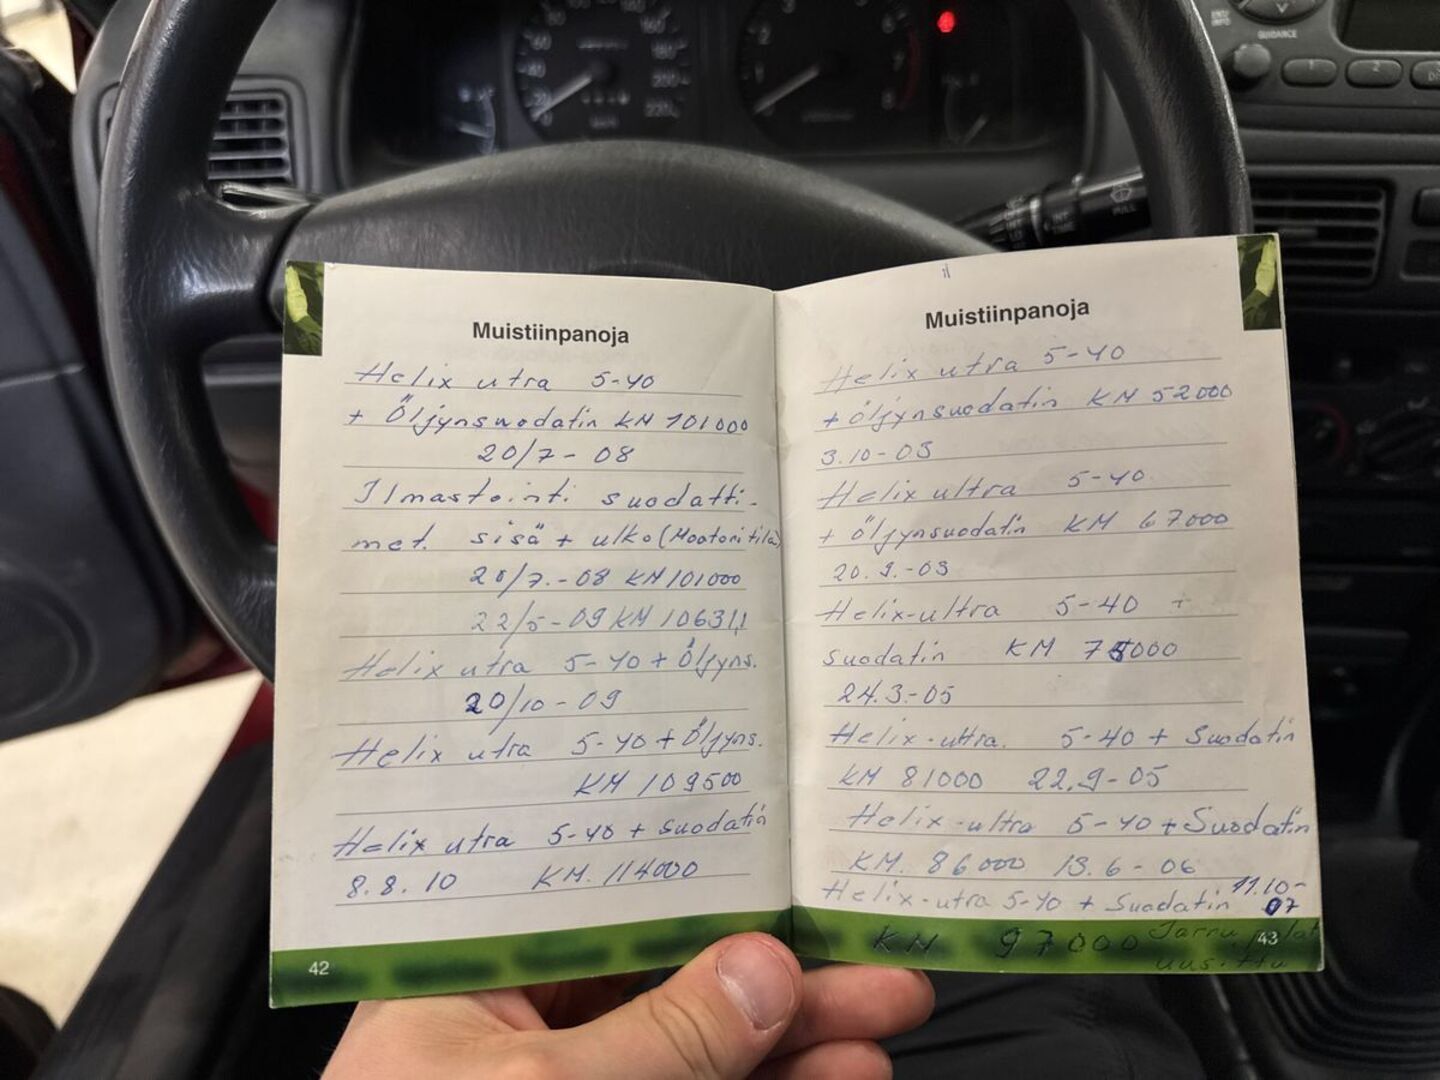 GUIDANCE
1
2
Muistiinpanoja
Helix utra 5-40
+ Öljynsuodatin KM 101000
20/7-08
Ilmastointi suodatti-
met. sisä + ulko (Mootoritila)
20/7.-08 KM 101000
22/5-09 KM 106311
Helix utra 5-40 + Öljyns.
20/10-09
Helix utra 5-40 + Öljyns.
KM 109500
Helix utra 5-40 + Suodatin
8.8.10 KM. 114000
42
Muistiinpanoja
Helix utra 5-40
+ Öljynsuodatin KM 52000
3.10-03
Helix ultra 5-40
+ Öljynsuodatin KM 67000
20.9.-03
Helix-ultra 5-40 +
Suodatin KM 75000
24.3-05
Helix-ultra. 5-40 + Suodatin
KM 81000 22.9-05
Helix-ultra 5-40 + Suodatin
KM. 86000 13.6-06
Helix-utra 5-40 + Suodatin 11.10-
07
KM 97000 Jarru palat
uusittu
43